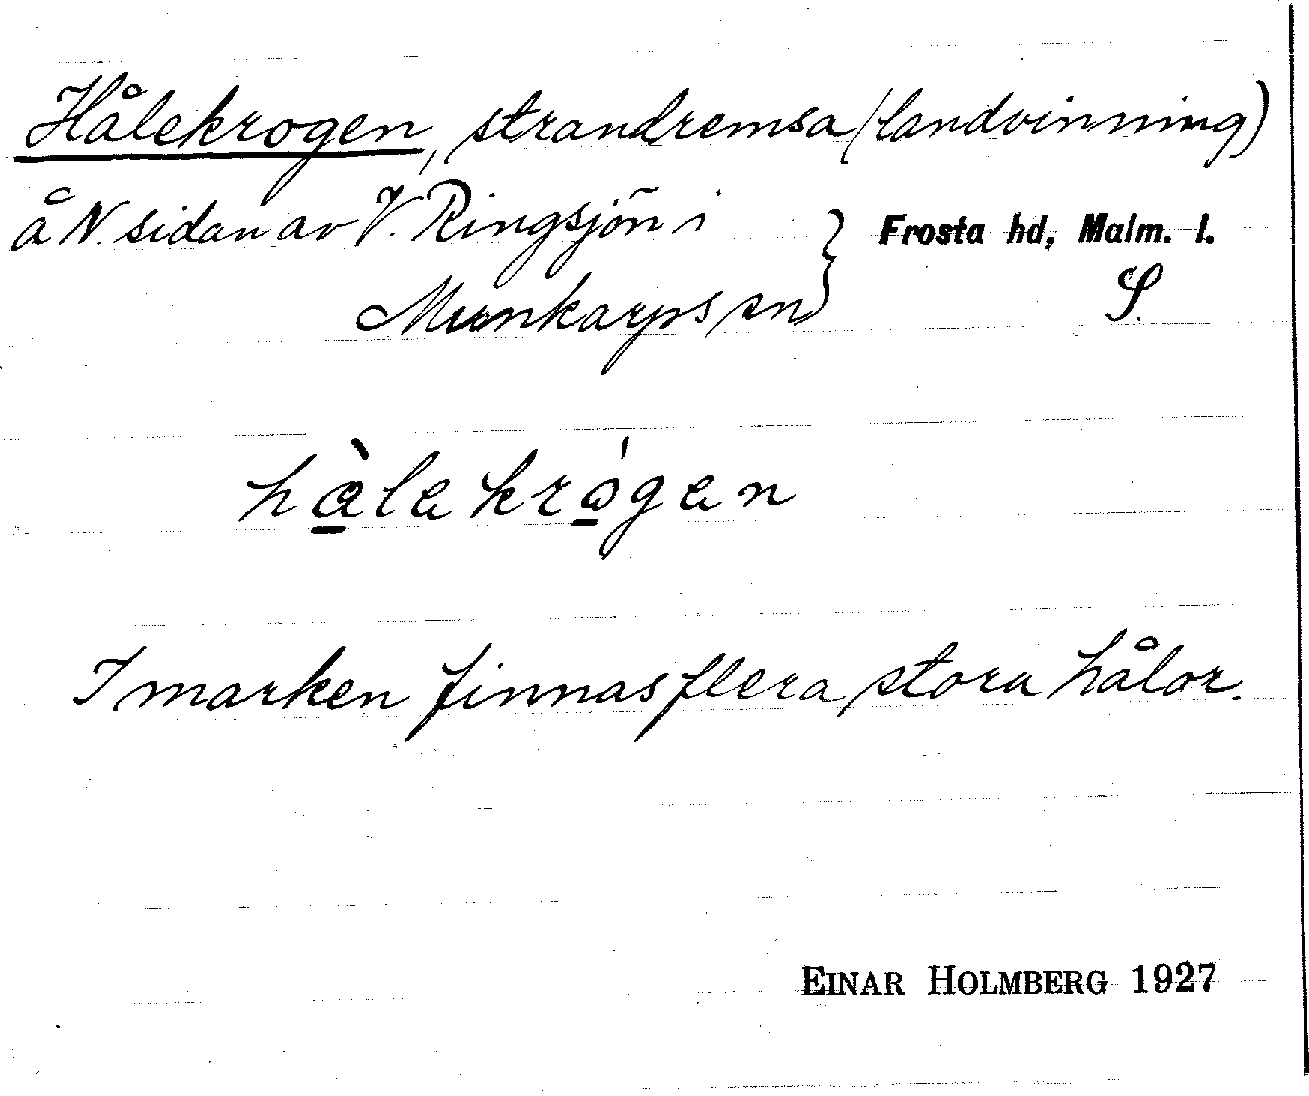 Hålekrogen, strandremsa (landvinning)
å N. sidan av V. Ringsjön i
Munkarps sn } Frosta hd, Malm. l.
S.
hàlekrógen
I marken finnas flera stora hålor.
EINAR HOLMBERG 1927